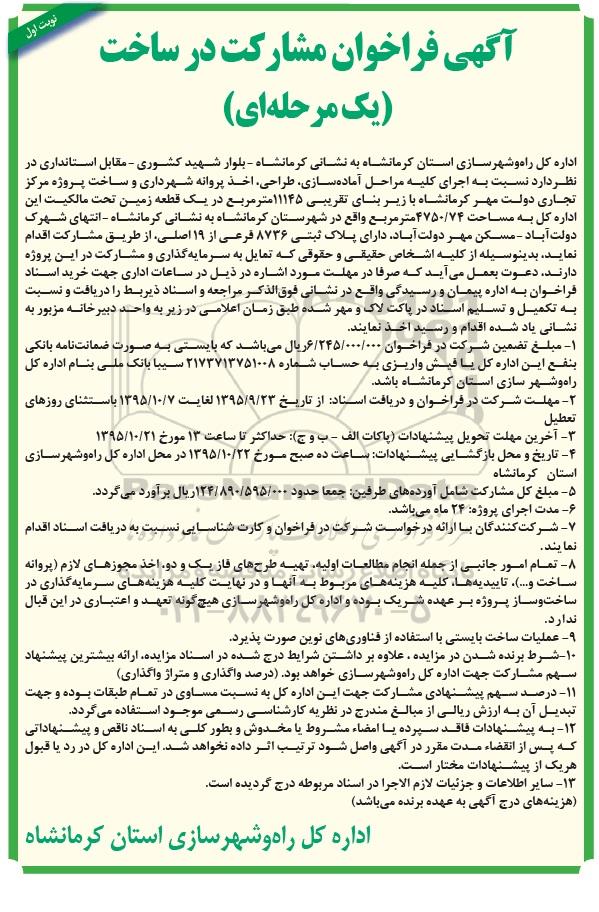 نوبت اول
آگهی فراخوان مشارکت در ساخت
(یک مرحله‌ای)
اداره کل راه‌وشهرسازی استان کرمانشاه به نشانی کرمانشاه - بلوار شهید کشوری - مقابل استانداری در
نظردارد نسبت به اجرای کلیه مراحل آماده‌سازی، طراحی، اخذ پروانه شهرداری و ساخت پروژه مرکز
تجاری دولت مهر کرمانشاه با زیر بنای تقریبی ۱۱۱۴۵مترمربع در یک قطعه زمین تحت مالکیت این
اداره کل به مساحت ۴۷۵۰/۷۴مترمربع واقع در شهرستان کرمانشاه به نشانی کرمانشاه -انتهای شهرک
دولت‌آباد -مسکن مهر دولت‌آباد، دارای پلاک ثبتی ۸۷۳۶ فرعی از ۱۹اصلی، از طریق مشارکت اقدام
نماید. بدینوسیله از کلیه اشخاص حقیقی و حقوقی که تمایل به سرمایه‌گذاری و مشارکت در این پروژه
دارند، دعوت بعمل می‌آید که صرفا در مهلت مورد اشاره در ذیل در ساعات اداری جهت خرید اسناد
فراخوان به اداره پیمان و رسیدگی واقع در نشانی فوق‌الذکر مراجعه و اسناد ذیربط را دریافت و نسبت
به تکمیل و تسلیم اسناد در پاکت لاک و مهر شده طبق زمان اعلامی در زیر به واحد دبیرخانه مزبور به
نشانی یاد شده اقدام و رسید اخذ نمایند.
۱- مبلغ تضمین شرکت در فراخوان ۶/۲۴۵/۰۰۰/۰۰۰ریال می‌باشد که بایستی به صورت ضمانت‌نامه بانکی
بنفع این اداره کل یا فیش واریزی به حساب شماره ۲۱۷۳۷۱۳۷۵۱۰۰۸ سیبا بانک ملی بنام اداره کل
راه‌وشهر سازی استان کرمانشاه باشد.
۲- مهلت شرکت در فراخوان و دریافت اسناد: از تاریخ ۱۳۹۵/۹/۲۳ لغایت ۱۳۹۵/۱۰/۷ باستثنای روزهای
تعطیل
۳- آخرین مهلت تحویل پیشنهادات (پاکات الف - ب و ج): حداکثر تا ساعت ۱۳ مورخ ۱۳۹۵/۱۰/۲۱
۴- تاریخ و محل بازگشایی پیشنهادات: ساعت ده صبح مورخ ۱۳۹۵/۱۰/۲۲ در محل اداره کل راه‌وشهرسازی
استان کرمانشاه
۵- مبلغ کل مشارکت شامل آورده‌های طرفین: جمعا حدود ۱۲۴/۸۹۰/۵۹۵/۰۰۰ریال برآورد می‌گردد.
۶- مدت اجرای پروژه: ۲۴ ماه می‌باشد.
۷- شرکت‌کنندگان با ارائه درخواست شرکت در فراخوان و کارت شناسایی نسبت به دریافت اسناد اقدام
نمایند.
۸- تمام امور جانبی از جمله انجام مطالعات اولیه، تهیه طرح‌های فاز یک و دو، اخذ مجوزهای لازم (پروانه
ساخت و...)، تاییدیه‌ها، کلیه هزینه‌های مربوط به آنها و در نهایت کلیه هزینه‌های سرمایه‌گذاری در
ساخت‌وساز پروژه بر عهده شریک بوده و اداره کل راه‌وشهرسازی هیچ‌گونه تعهد و اعتباری در این قبال
ندارد.
۹- عملیات ساخت بایستی با استفاده از فناوری‌های نوین صورت پذیرد.
۱۰-شرط برنده شدن در مزایده ، علاوه بر داشتن شرایط درج شده در اسناد مزایده، ارائه بیشترین پیشنهاد
سهم مشارکت جهت اداره کل راه‌وشهرسازی خواهد بود. (درصد واگذاری و متراژ واگذاری)
۱۱- درصد سهم پیشنهادی مشارکت جهت این اداره کل به نسبت مساوی در تمام طبقات بوده و جهت
تبدیل آن به ارزش ریالی از مبالغ مندرج در نظریه کارشناسی رسمی موجود استفاده می‌گردد.
۱۲- به پیشنهادات فاقد سپرده یا امضاء مشروط یا مخدوش و بطور کلی به اسناد ناقص و پیشنهاداتی
که پس از انقضاء مدت مقرر در آگهی واصل شود ترتیب اثر داده نخواهد شد. این اداره کل در رد یا قبول
هریک از پیشنهادات مختار است.
۱۳- سایر اطلاعات و جزئیات لازم الاجرا در اسناد مربوطه درج گردیده است.
(هزینه‌های درج آگهی به عهده برنده می‌باشد)
اداره کل راه‌وشهرسازی استان کرمانشاه
ParsNamadData
۰۲۱-۸۸۳۴۹۶۷۰-۵